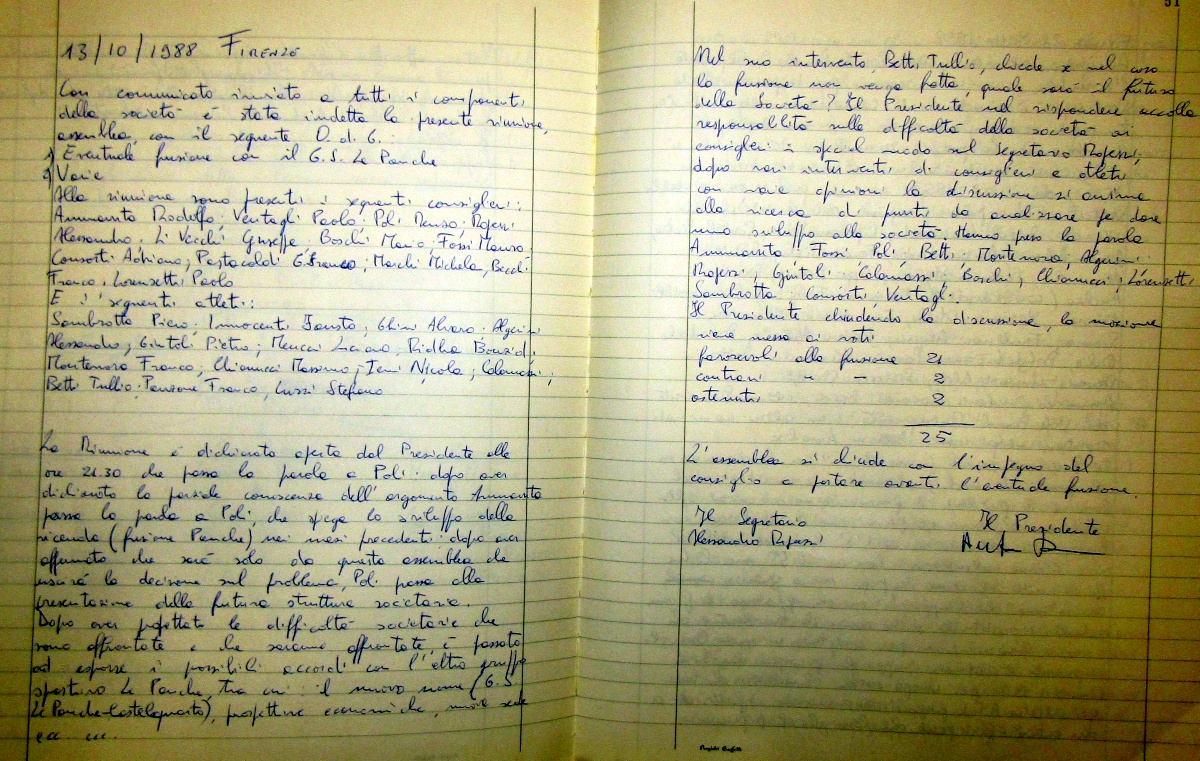 13/10/1988 FIRENZE
Con comunicato inviato a tutti i componenti
della società è stata indetta la presente riunione,
assemblea, con il seguente O. d. G.:
1) Eventuale fusione con il G.S. Le Panche
2) Varie
Alla riunione sono presenti i seguenti consiglieri:
Ammannato Rodolfo. Ventagli Paolo. Poli Renzo.
Alessandro. Li Vecchi Giuseppe. Boschi Mario, Fossi Mauro
Consorti Adriano, Pastacaldi G.Franco, Marchi Michela, Becchi
Franco, Lorenzetti Paolo
E i seguenti atleti:
Sambrotta Piero. Innocenti Fausto, Ghini Alvaro. Algerini
Alessandro, Gintoli Pietro; Meucci Luciano, Ridha
Montenora Franco, Chianucci Massimo, Nicola, Colamassi;
Betti Tullio. Franco, Stefano
La Riunione è dichiarata aperta dal Presidente alle
ore 21.30 che passa la parola a Poli. dopo aver
la parziale conoscenza dell'argomento Ammannato
passa la parola a Poli, che spiega lo sviluppo della
vicenda (fusione Panche) nei mesi precedenti. dopo aver
affermato che sarà solo da questa assemblea che
uscirà la decisione sul problema, Poli passa alla
presentazione della futura struttura societaria.
Dopo aver le difficoltà societarie che
sono affrontate e che saranno affrontate, è passato
ad esporre i possibili accordi con l'altro gruppo
sportivo Le Panche, tra cui: il nuovo nome (G.S.
Le Panche-Castelquarto), prospettive economiche, nuova sede
ecc. ecc.
51
Nel suo intervento, Betti Tullio, chiede se nel caso
la fusione non venga fatta, quale sarà il futuro
della Società? Il Presidente nel rispondere accolla
responsabilità sulle difficoltà della società ai
consiglieri in special modo sul Segretario
dopo vari interventi di consiglieri e atleti
con varie opinioni la discussione si anima
alla ricerca di punti da analizzare per dare
uno sviluppo alla società. Hanno preso la parola
Ammannato Fossi Poli, Betti. Montenora, Algerini
Gintoli. Colamassi. Boschi, Chianucci, Lorenzetti
Sambrotta. Consorti, Ventagli.
Il Presidente chiudendo la discussione, la mozione
viene messa ai voti
favorevoli alla fusione 21
contrari " " 2
astenuti 2
25
L'assemblea si chiude con l'impegno del
consiglio a portare avanti l'eventuale fusione.
Il Segretario Il Presidente
Alessandro